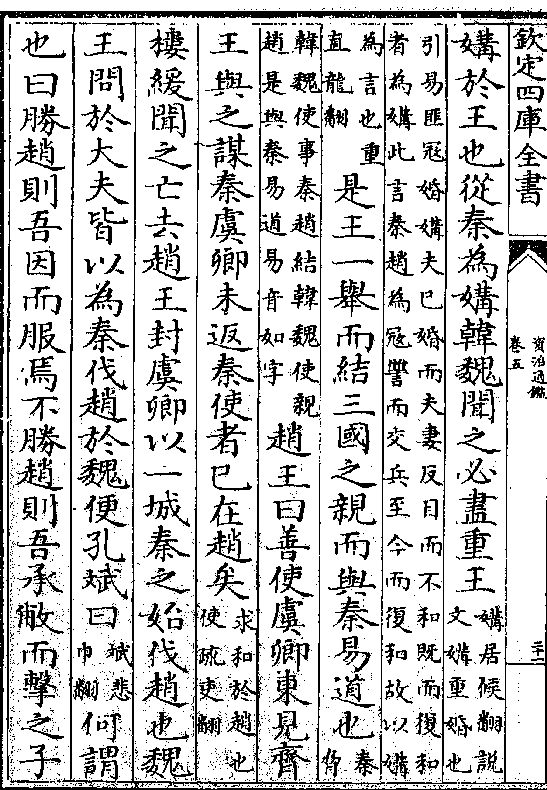 欽定四庫全書
資治通鑑
卷五
媾於王也從秦為媾韓魏聞之必盡重王媾居候翻說
文媾重婚也
引易匪冦婚媾夫已婚而夫妻反目而不和既而復和
者為媾此言秦趙為冦讐而交兵至今而復和故以媾
為言也重
直龍翻
是王一舉而結三國之親而與秦易道也秦
韓魏使事秦趙結韓魏使親
趙是與秦易道易音如字
趙王曰善使虞卿東見齊
王與之謀秦虞卿未返秦使者已在趙矣求和於趙也
使疏吏翻
樓緩聞之亡去趙王封虞卿以一城秦之始伐趙也魏
王問於大夫皆以為秦伐趙於魏便孔斌曰斌悲
巾翻
何謂
也曰勝趙則吾因而服焉不勝趙則吾承敝而擊之子